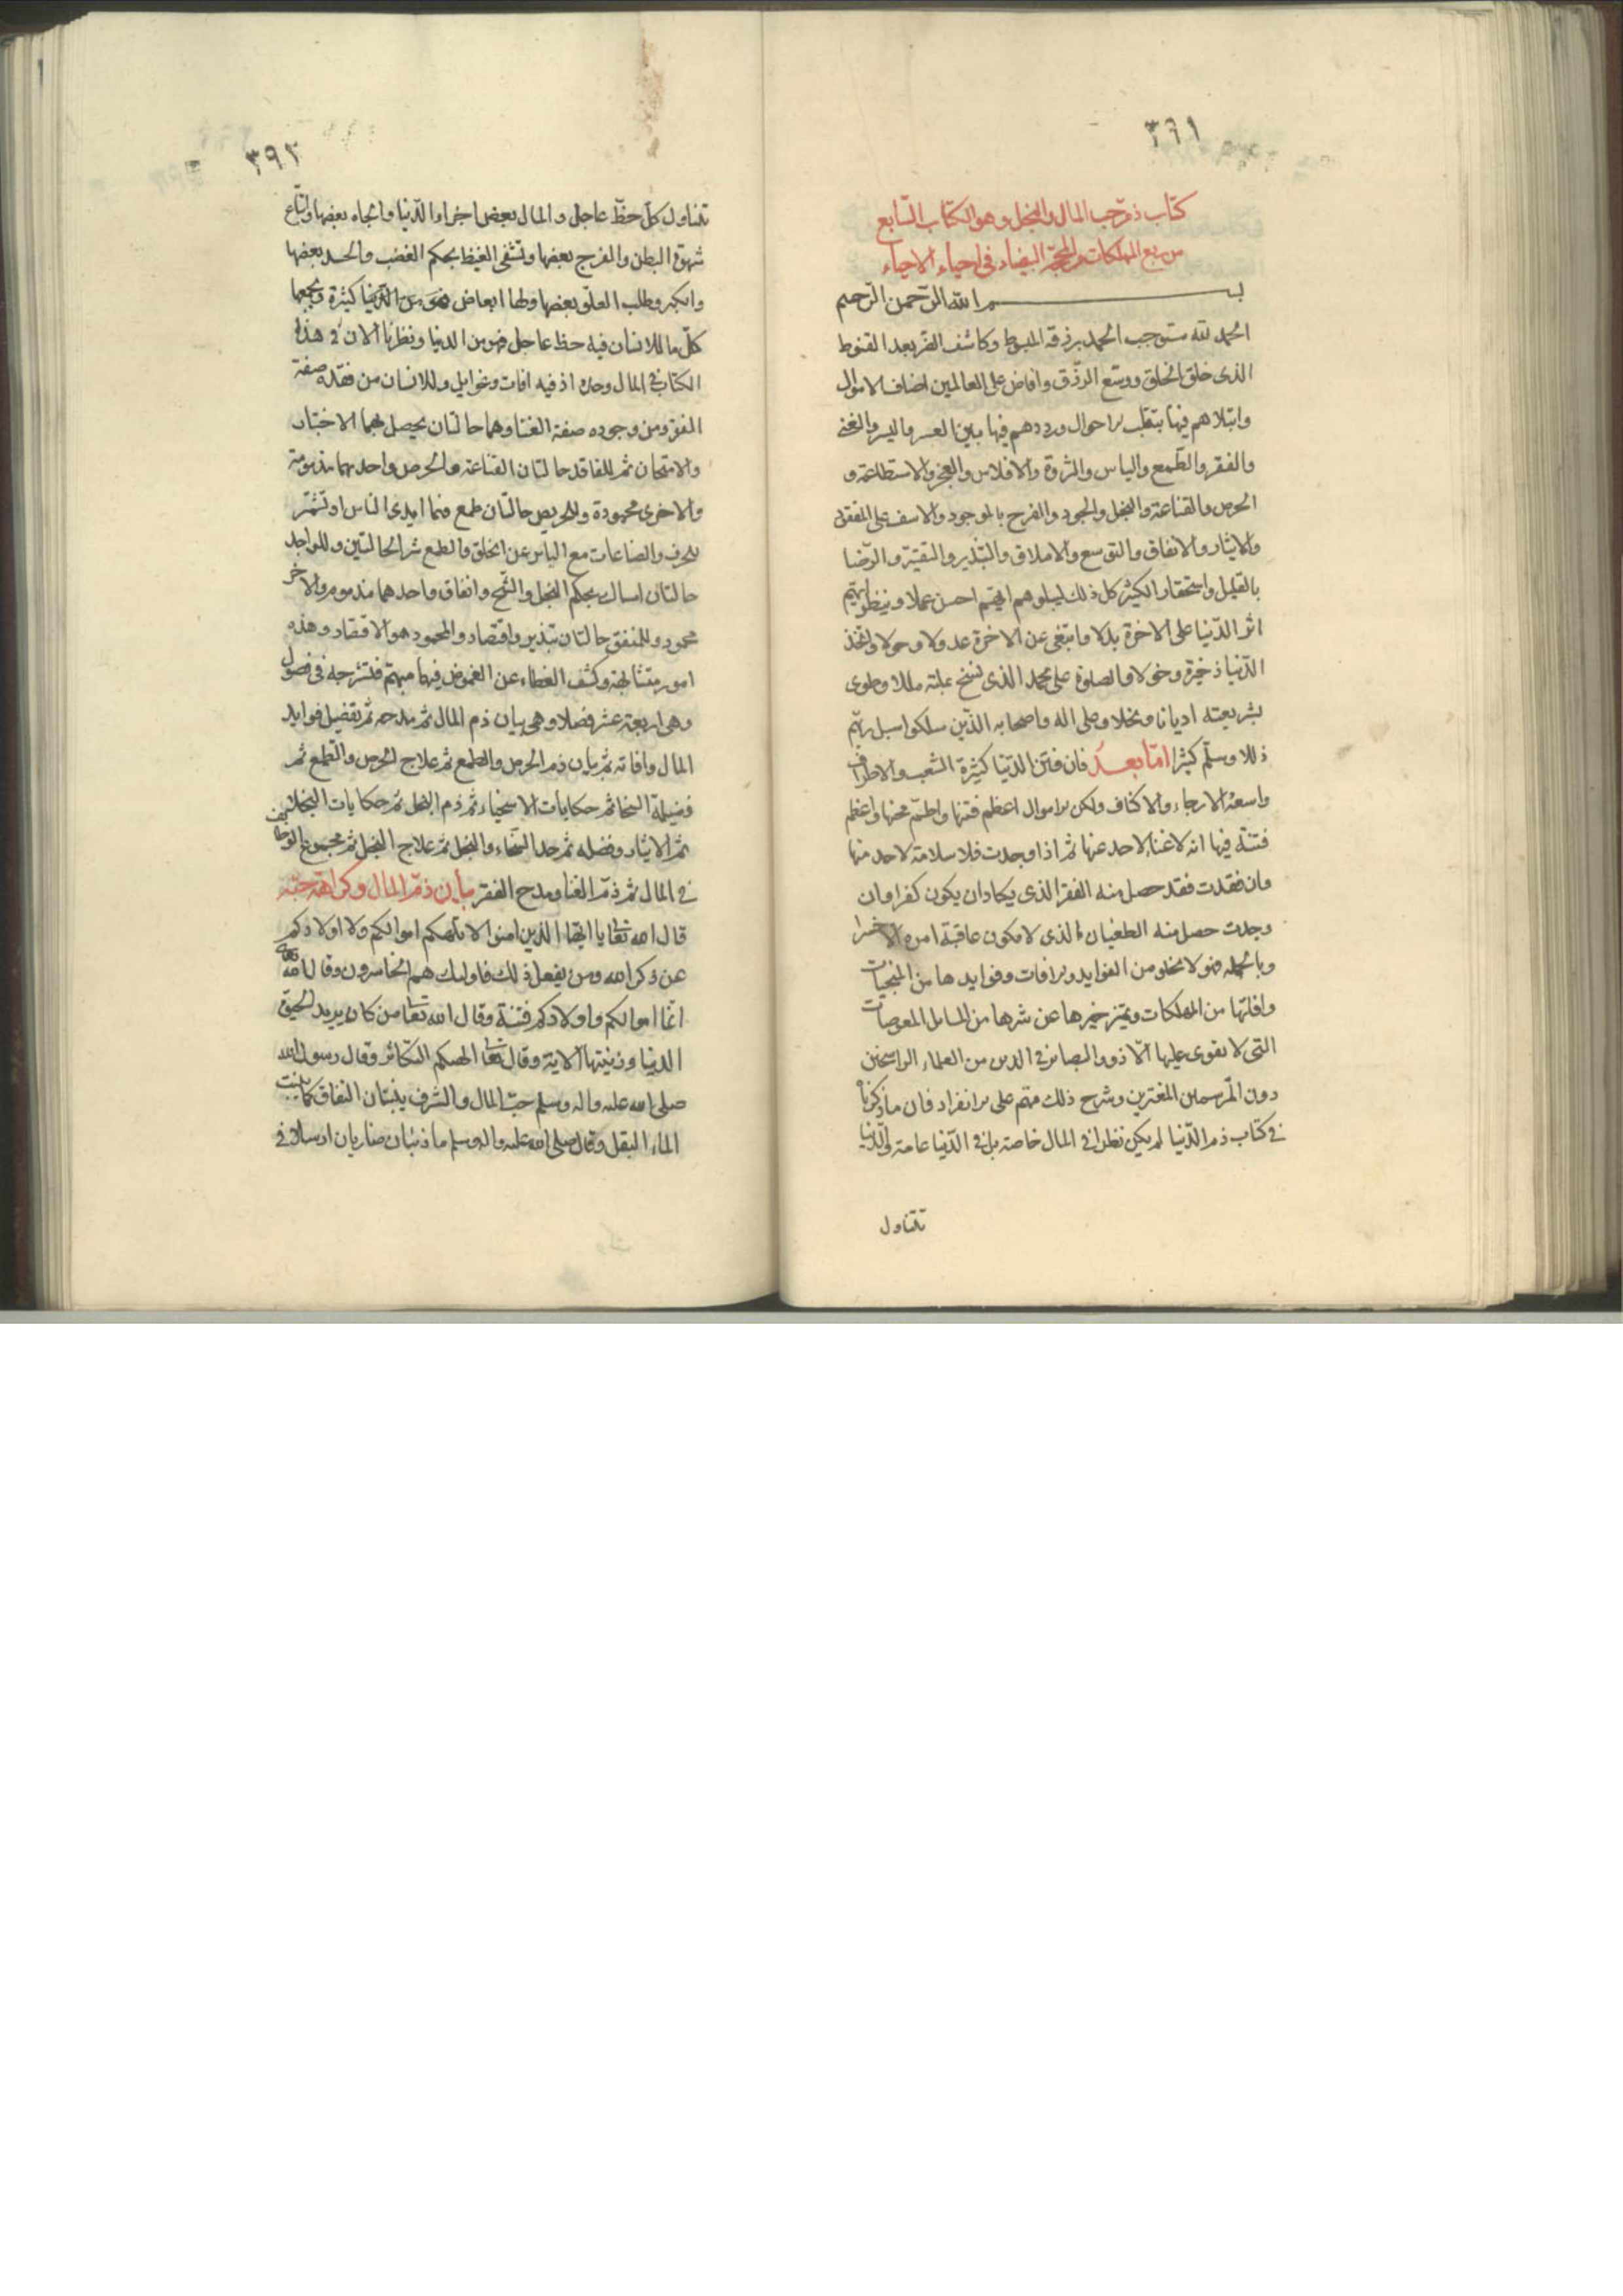 ٣٩١
كتاب ذم حب المال والبخل وهو الكتاب السابع
من ربع المهلكات من المحجة البيضاء فى احياء الاحياء
بسم الله الرحمن الرحيم
الحمد لله مستوجب الحمد برزقه المبسوط وكاشف الضر بعد القنوط
الذى خلق الخلق ووسع الرزق وافاض على العالمين اصناف الاموال
وابتلاهم فيها بتقلب الاحوال ورددهم فيها بين العسر واليسر والغنى
والفقر والطمع والياس والثروة والافلاس والعجز والاستطاعة و
الحرص والقناعة والبخل والجود والفرح بالموجود والاسف على المفقود
والايثار والانفاق والتوسع والاملاق والتبذير والتقتير والرضا
بالقليل واستحقار الكثير كل ذلك ليبلوهم ايهم احسن عملا وينظر ايهم
اثر الدنيا على الاخرة بدلا وابتغى عن الاخرة عدولا وحولا واتخذ
الدنيا ذخيرة وخولا والصلوة على محمد الذى نسخ بملته مللا وطوى
بشريعته اديانا ونحلا وعلى اله واصحابه الذين سلكوا سبل ربهم
ذللا وسلم كثيرا اما بعد فان فتن الدنيا كثيرة الشعب والاطراف
واسعة الارجاء والاكناف ولكن الاموال اعظم فتنها واطم محنها واعظم
فتنة فيها انه لا غنا لاحد عنها ثم اذا وجدت فلا سلامة لاحد منها
وان فقدت فقد حصل منه الفقر الذى يكاد ان يكون كفرا وان
وجدت حصل منه الطغيان الذى لا يكون عاقبة امره الا خسرا
وبالجملة فهو لا يخلو من الفوايد والافات وفوايدها من المنجيات
وافاتها من المهلكات وتميز خيرها عن شرها من المسائل المعوصات
التى لا يقوى عليها الا ذوو البصائر فى الدين من العلماء الراسخين
دون المترسمين المغترين وشرح ذلك مهم على الانفراد فان ما ذكرناه
فى كتاب ذم الدنيا لم يكن نظرا فى المال خاصة بل فى الدنيا عامة اذ الدنيا
تتناول
٣٩٢
تتناول كل حظ عاجل والمال بعض اجزاء الدنيا والجاه بعضها واتباع
شهوة البطن والفرج بعضها وتشفى الغيظ بحكم الغضب والحسد بعضها
والكبر وطلب العلو بعضها ولها ابعاض كثيرة ويجمعها
كل ما للانسان فيه حظ عاجل فهو من الدنيا ونظرنا الان فى هذا
الكتاب فى المال وحده اذ فيه افات وغوايل وللانسان من فقده صفة
الفقر ومن وجوده صفة الغنا وهما حالتان يحصل بهما الاختبار
والامتحان ثم للفاقد حالتان القناعة والحرص واحديهما مذمومة
والاخرى محمودة وللحريص حالتان طمع فيما ايدى الناس او تشمر
للحرف والصناعات مع الياس عن الخلق والطمع شر الحالتين وللواجد
حالتان امساك بحكم البخل والشح وانفاق واحدهما مذموم والاخر
محمود وللمنفق حالتان تبذير واقتصاد والمحمود هو الاقتصاد وهذه
امور متشابهة وكشف الغطاء عن الغموض فيها مهم فلنشرحه فى فصول
وهى اربعة عشر فصلا وهى بيان ذم المال ثم مدحه ثم تفصيل فوايد
المال وافاته ثم بيان ذم الحرص والطمع ثم علاج الحرص والطمع ثم
فضيلة السخا ثم حكايات الاسخياء ثم ذم البخل ثم حكايات البخلاء
ثم الايثار وفضله ثم حد السخاء والبخل ثم علاج البخل ثم مجموع الوظايف
فى المال ثم ذم الغنا ومدح الفقر بيان ذم المال وكراهة حبه
قال الله تعالى يا ايها الذين امنوا لا تلهكم اموالكم ولا اولادكم
عن ذكر الله ومن يفعل ذلك فاولئك هم الخاسرون وقال الله تعالى
انما اموالكم واولادكم فتنة وقال الله تعالى من كان يريد الحيوة
الدنيا وزينتها الاية وقال تعالى الهيكم التكاثر وقال رسول الله
صلى الله عليه واله وسلم حب المال والشرف ينبتان النفاق كما ينبت
الماء البقل وقال صلى الله عليه واله وسلم ما ذئبان ضاريان ارسلا فى